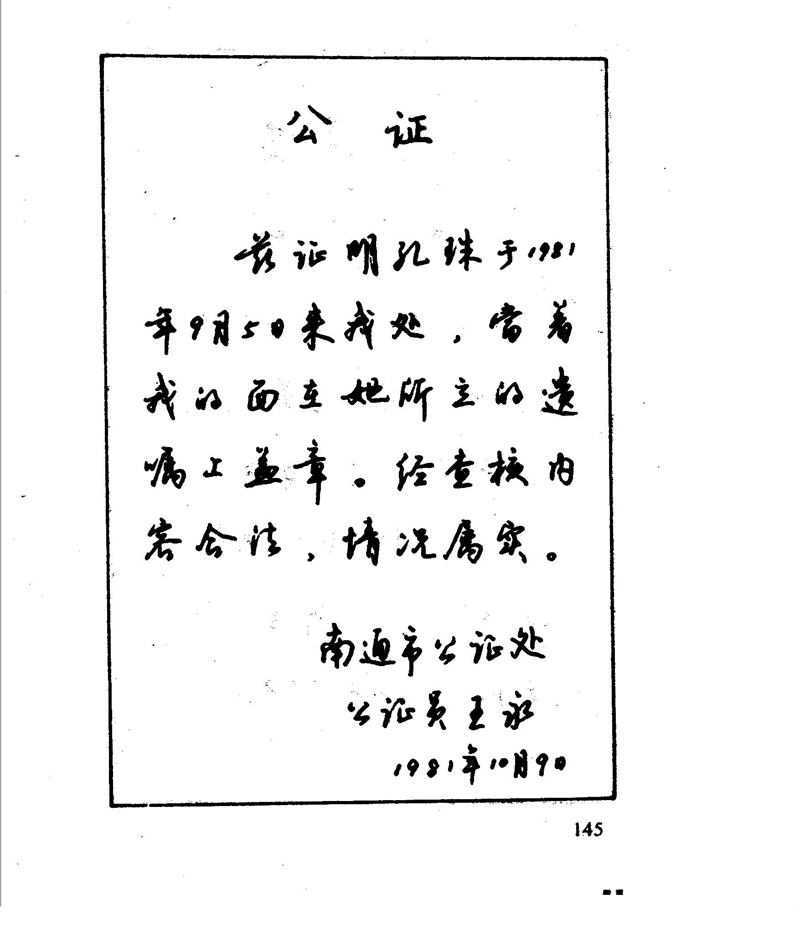 公 证
兹证明孔珠于1981
年9月5日来我处，当着
我的面在她所立的遗
嘱上盖章。经查核内
容合法，情况属实。
南通市公证处
公证员王永
1981年10月9日
145